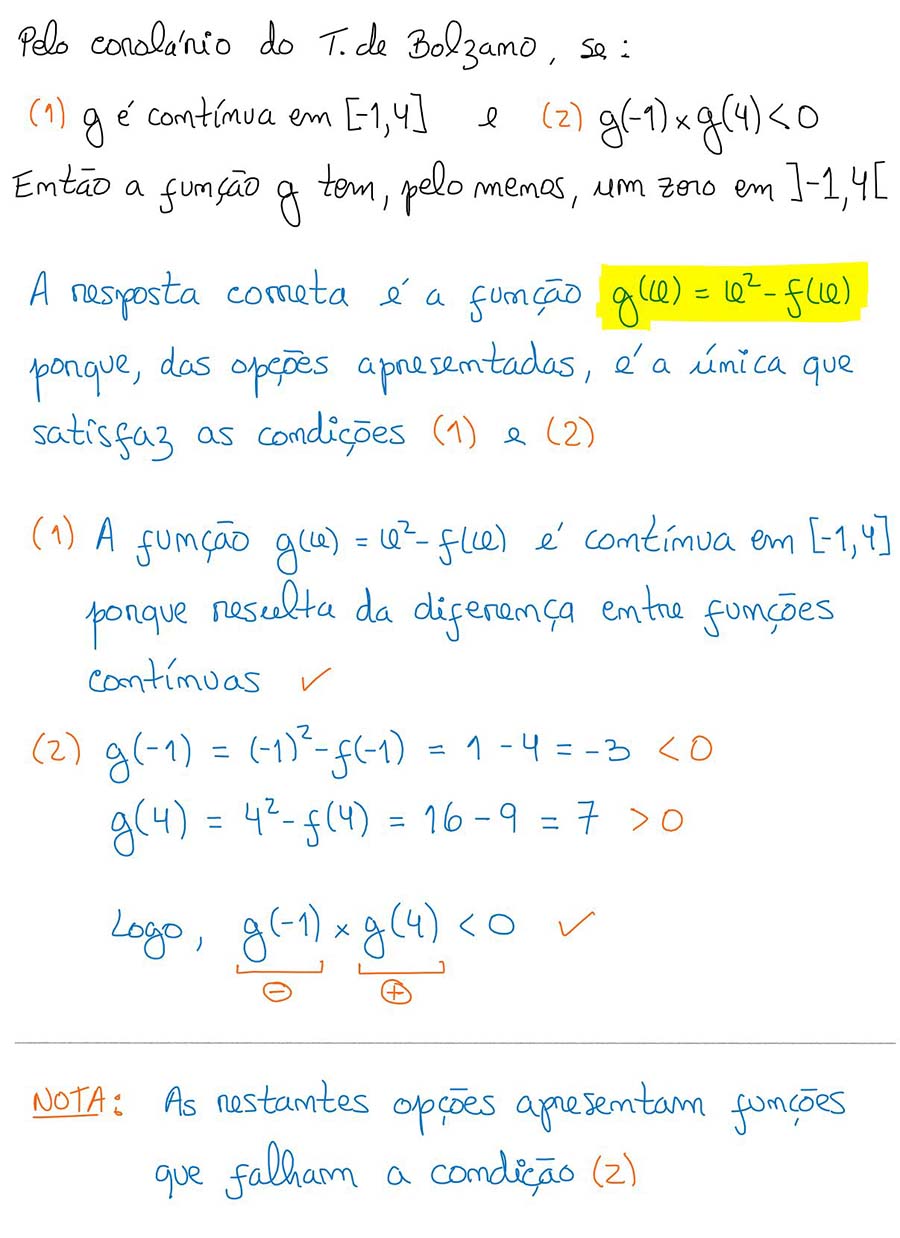 Pelo corolário do T. de Bolzano, se:
(1) g é contínua em [-1,4] e (2) g(-1) × g(4) < 0
Então a função g tem, pelo menos, um zero em ]-1,4[
A resposta correta é a função g(x) = x² - f(x)
porque, das opções apresentadas, é a única que
satisfaz as condições (1) e (2)
(1) A função g(x) = x² - f(x) é contínua em [-1,4]
porque resulta da diferença entre funções
contínuas ✓
(2) g(-1) = (-1)² - f(-1) = 1 - 4 = -3 < 0
g(4) = 4² - f(4) = 16 - 9 = 7 > 0
Logo, g(-1) × g(4) < 0 ✓
⊖ ⊕
NOTA: As restantes opções apresentam funções
que falham a condição (2)